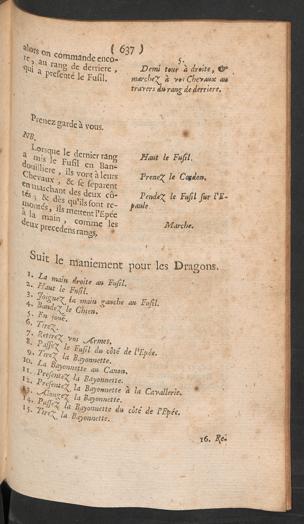 ( 637 )
alors on commande enco-
re, au rang de derriere,
qui a presenté le Fusil.
5.
Demi tour à droite, &
marchez à vos Chevaux au
travers du rang de derriere.
Prenez garde à vous.
NB.
Lorsque le dernier rang
a mis le Fusil en Ban-
douilliere, ils vont à leurs
Chevaux, & se separent
en marchant des deux cô-
tés; & dès qu'ils sont re-
montés, ils mettent l'Epée
à la main, comme les
deux precedens rangs.
Haut le Fusil.
Prenez le Cordon.
Pendez le Fusil sur l'E-
paule.
Marche.
Suit le maniement pour les Dragons.
1. La main droite au Fusil.
2. Haut le Fusil.
3. Joignez la main gauche au Fusil.
4. Bandez le Chien.
5. En joue.
6. Tirez.
7. Retirez vos Armes.
8. Passez le Fusil du côté de l'Epée.
9. Tirez la Bayonnette.
10. La Bayonnette au Canon.
11. Presentez la Bayonnette.
12. Presentez la Bayonnette à la Cavallerie.
13. Alongez la Bayonnette.
14. Passez la Bayonnette du côté de l'Epée.
15. Tirez la Bayonnette.
16. Re-